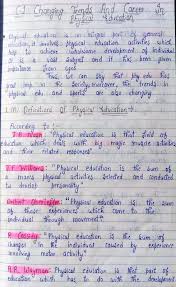 C-1 Changing Trends And Career In
Physical Education
Physical education is an integral part of general
education, it involves physical education activities which
help to achieve wholesome development of individual
as is a vast subject and it has been given
importance from
Thus, we can say that phy edu has
importance in the society, moreover, the trends in
physical edu. and sports are also changing
L.M Definitions of Physical Education
According to:-
J.B Nash "Physical education is that field of
education which deals with big muscle muscle activities
and their related responses".
J.F Williams: "Physical education is the sum
of many physical activities selected and conducted
to develop personality"
"Physical education is the sum
of those experiences which come to the
individual through movement".
R. Cassidy: "Physical education is the sum of
changes in the individual caused by experience
involving motor activity"
A.R. Wayman: "Physical education is that part of
education which has to do with the development